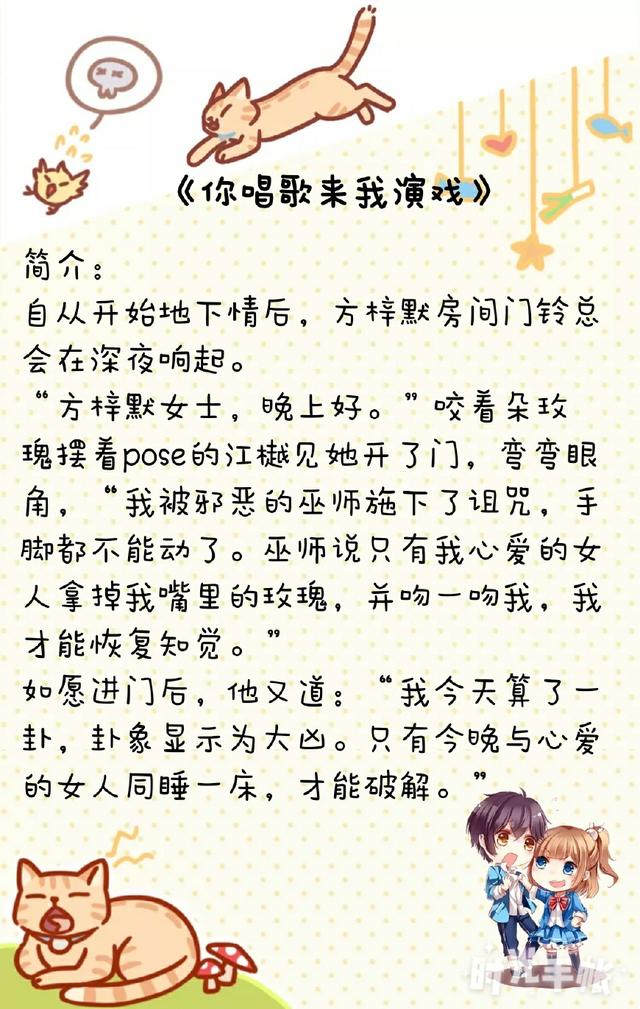 《你唱歌来我演戏》
简介：
自从开始地下情后，方梓默房间门铃总
会在深夜响起。
“方梓默女士，晚上好。”咬着朵玫
瑰摆着pose的江樾见她开了门，弯弯眼
角，“我被邪恶的巫师施下了诅咒，手
脚都不能动了。巫师说只有我心爱的女
人拿掉我嘴里的玫瑰，并吻一吻我，我
才能恢复知觉。”
如愿进门后，他又道：“我今天算了一
卦，卦象显示为大凶。只有今晚与心爱
的女人同睡一床，才能破解。”
时光手帐